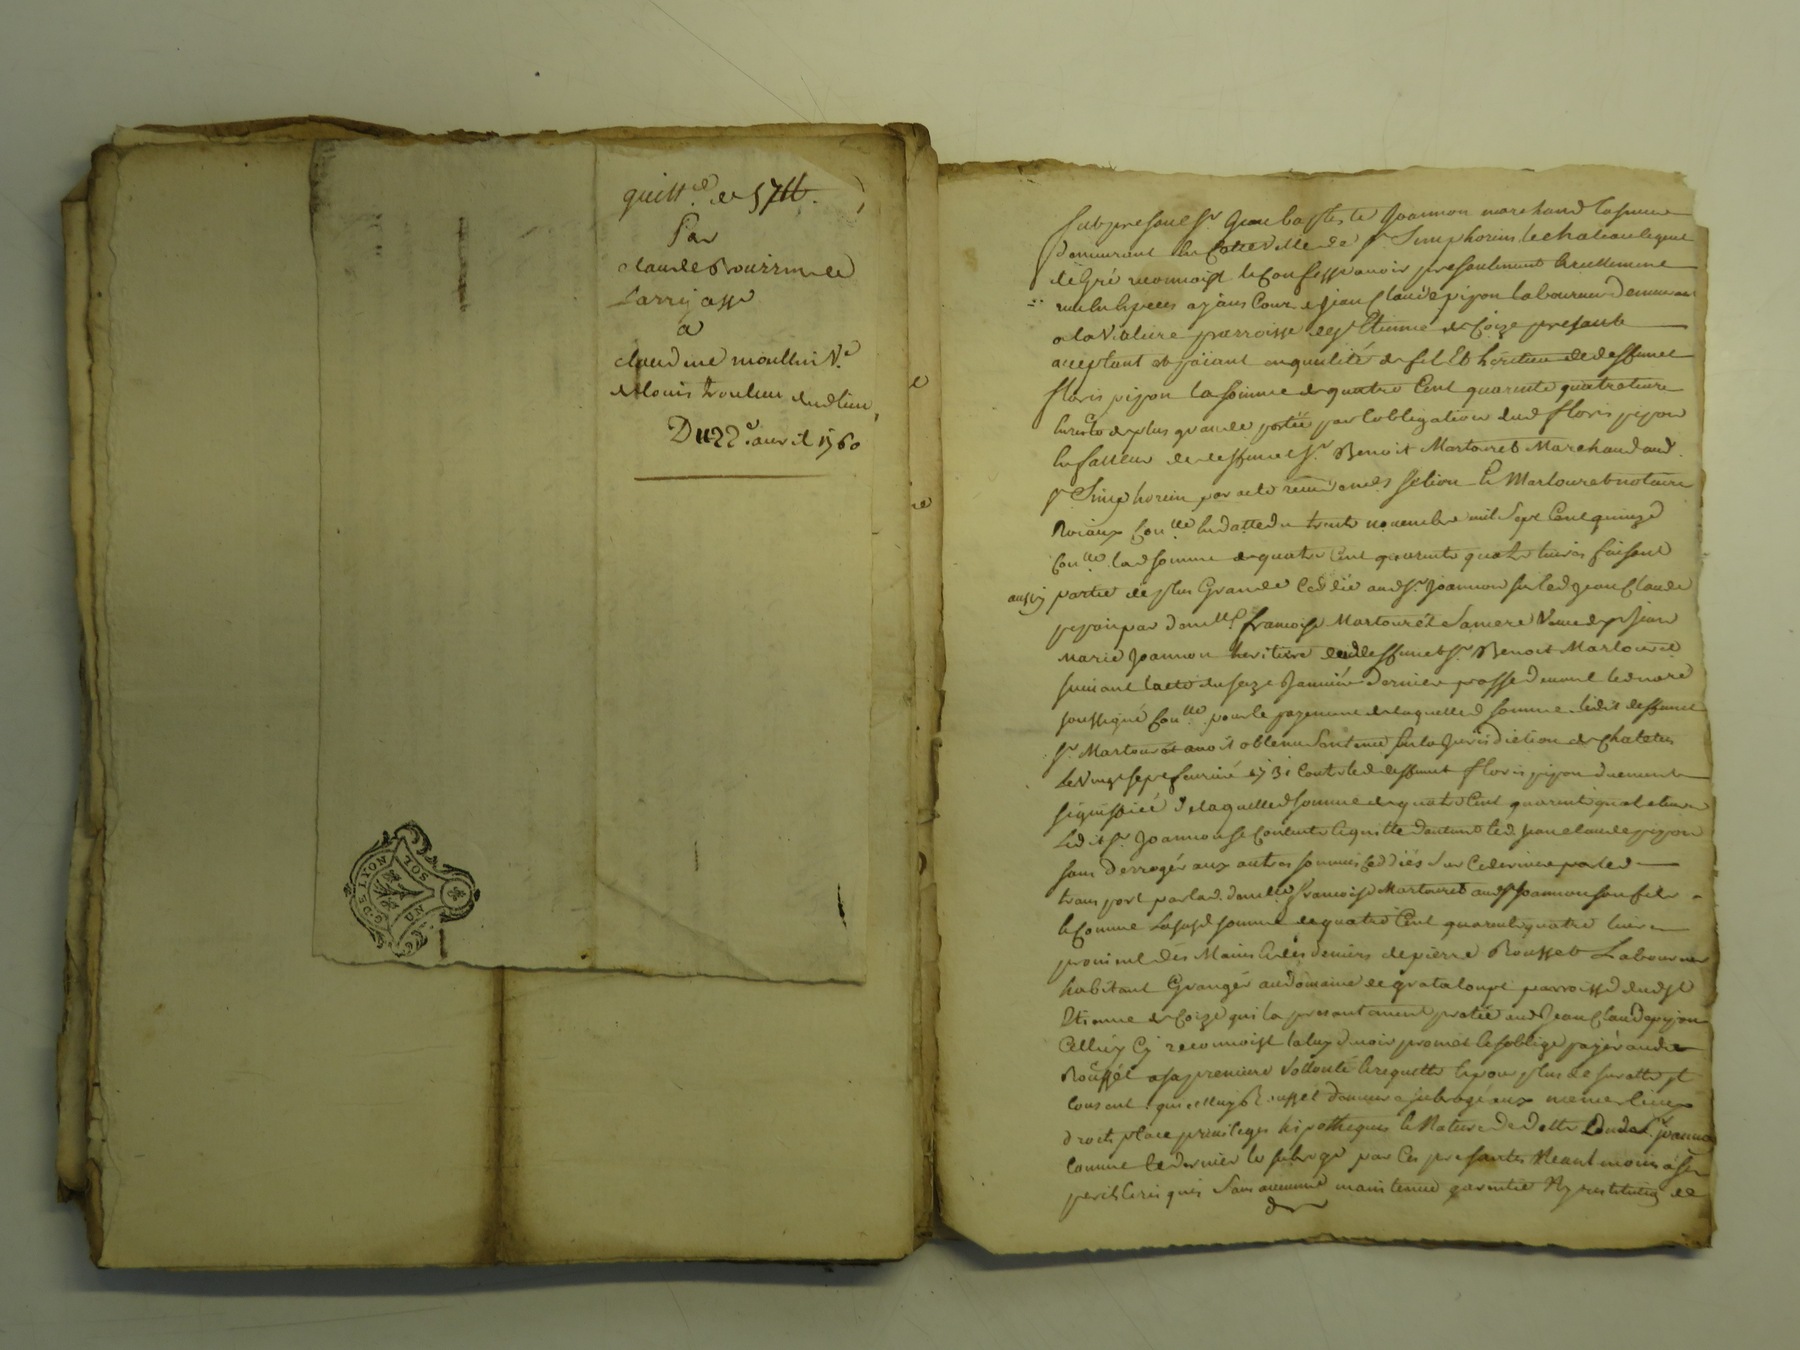 quitt.ce de 57tt.
Par
claude Bouzin de
Larrajasse
a
claudine moullin V.e
de Louis
Du 22e avril 1760
G.DS LYON
UN SOL
fut present S.r Jean baptiste Joannon marchand
demeurant en la ville de S.t Simphorien le chateau lequel
de gré reconnoist et confesse avoir presentement et reellement
receu en especes ayans cour de Jean Claude pijon laboureur demeurant
a la Valiere parroisse de S.t Etienne de Coize present
acceptant et païant en qualité de fil et heritier de deffunct
floris pijon la somme de quatre Cent quarente quatre livres
en reste de plus grande portée par l'obligation dud floris pijon
en faveur de deffunct S.r Benoit Martouret Marchand aud
S.t Simphorien par acte receu Me Martouret notaire
Roiaux Con.llé en datte du trente novembre mil Sept Cent quinze
Con.llé lad somme de quatre Cent quarente quatre livres faisant
aussy partie de plus Grande Ceddée aud S.r Joannon sur led Jean Claude
pijon par dam.lle francoise Martouret sa mere Veuve de S.r Jean
Marie Joannon heritiere dud deffunct S.r Benoit Martouret
suivant l'acte du seize Janvier dernier passé devant le no.re
soussigné Con.llé pour le payement de laquelle somme ledit deffunct
S.r Martouret avoit obtenu Sentence en la Jurisdiction de Chatelus
le Vingt sept fevrier 1731 Contre led deffunct floris pijon duement
signiffiée de laquelle somme de quatre Cent quarente quatre livres
Ledit S.r Joannon se Contente et quitte d'autant led. Jean claude pijon
sans derroger aux autres sommes Ceddées sur Ce dernier par led
transport par lad. dam.lle francoise Martouret aud S.r Joannon son fils
et Comme lasusd somme de quatre Cent quarente quatre livres
provient des Mains et des deniers de pierre Rousset Laboureur
habitant Granger au domaine de grataloupt parroisse dud S.t
Etienne de Coize qui l'a presentement pretée aud Jean Claude pijon
Celluy Cy reconnoist la luy devoir promet et s'oblige payer aud
Rousset a sa premiere Vollonté et requette et pour plus de suretté il
Consent que celluy Rousset demeure subrogé aux meme lieux
droits place privileges hipotheques et Nature de dette dud S.r Joannon
Comme Ce dernier le subroge par Ces presentes Neant moins a ses
perils et risques sans aucune maintenue garentie Ny restitution de